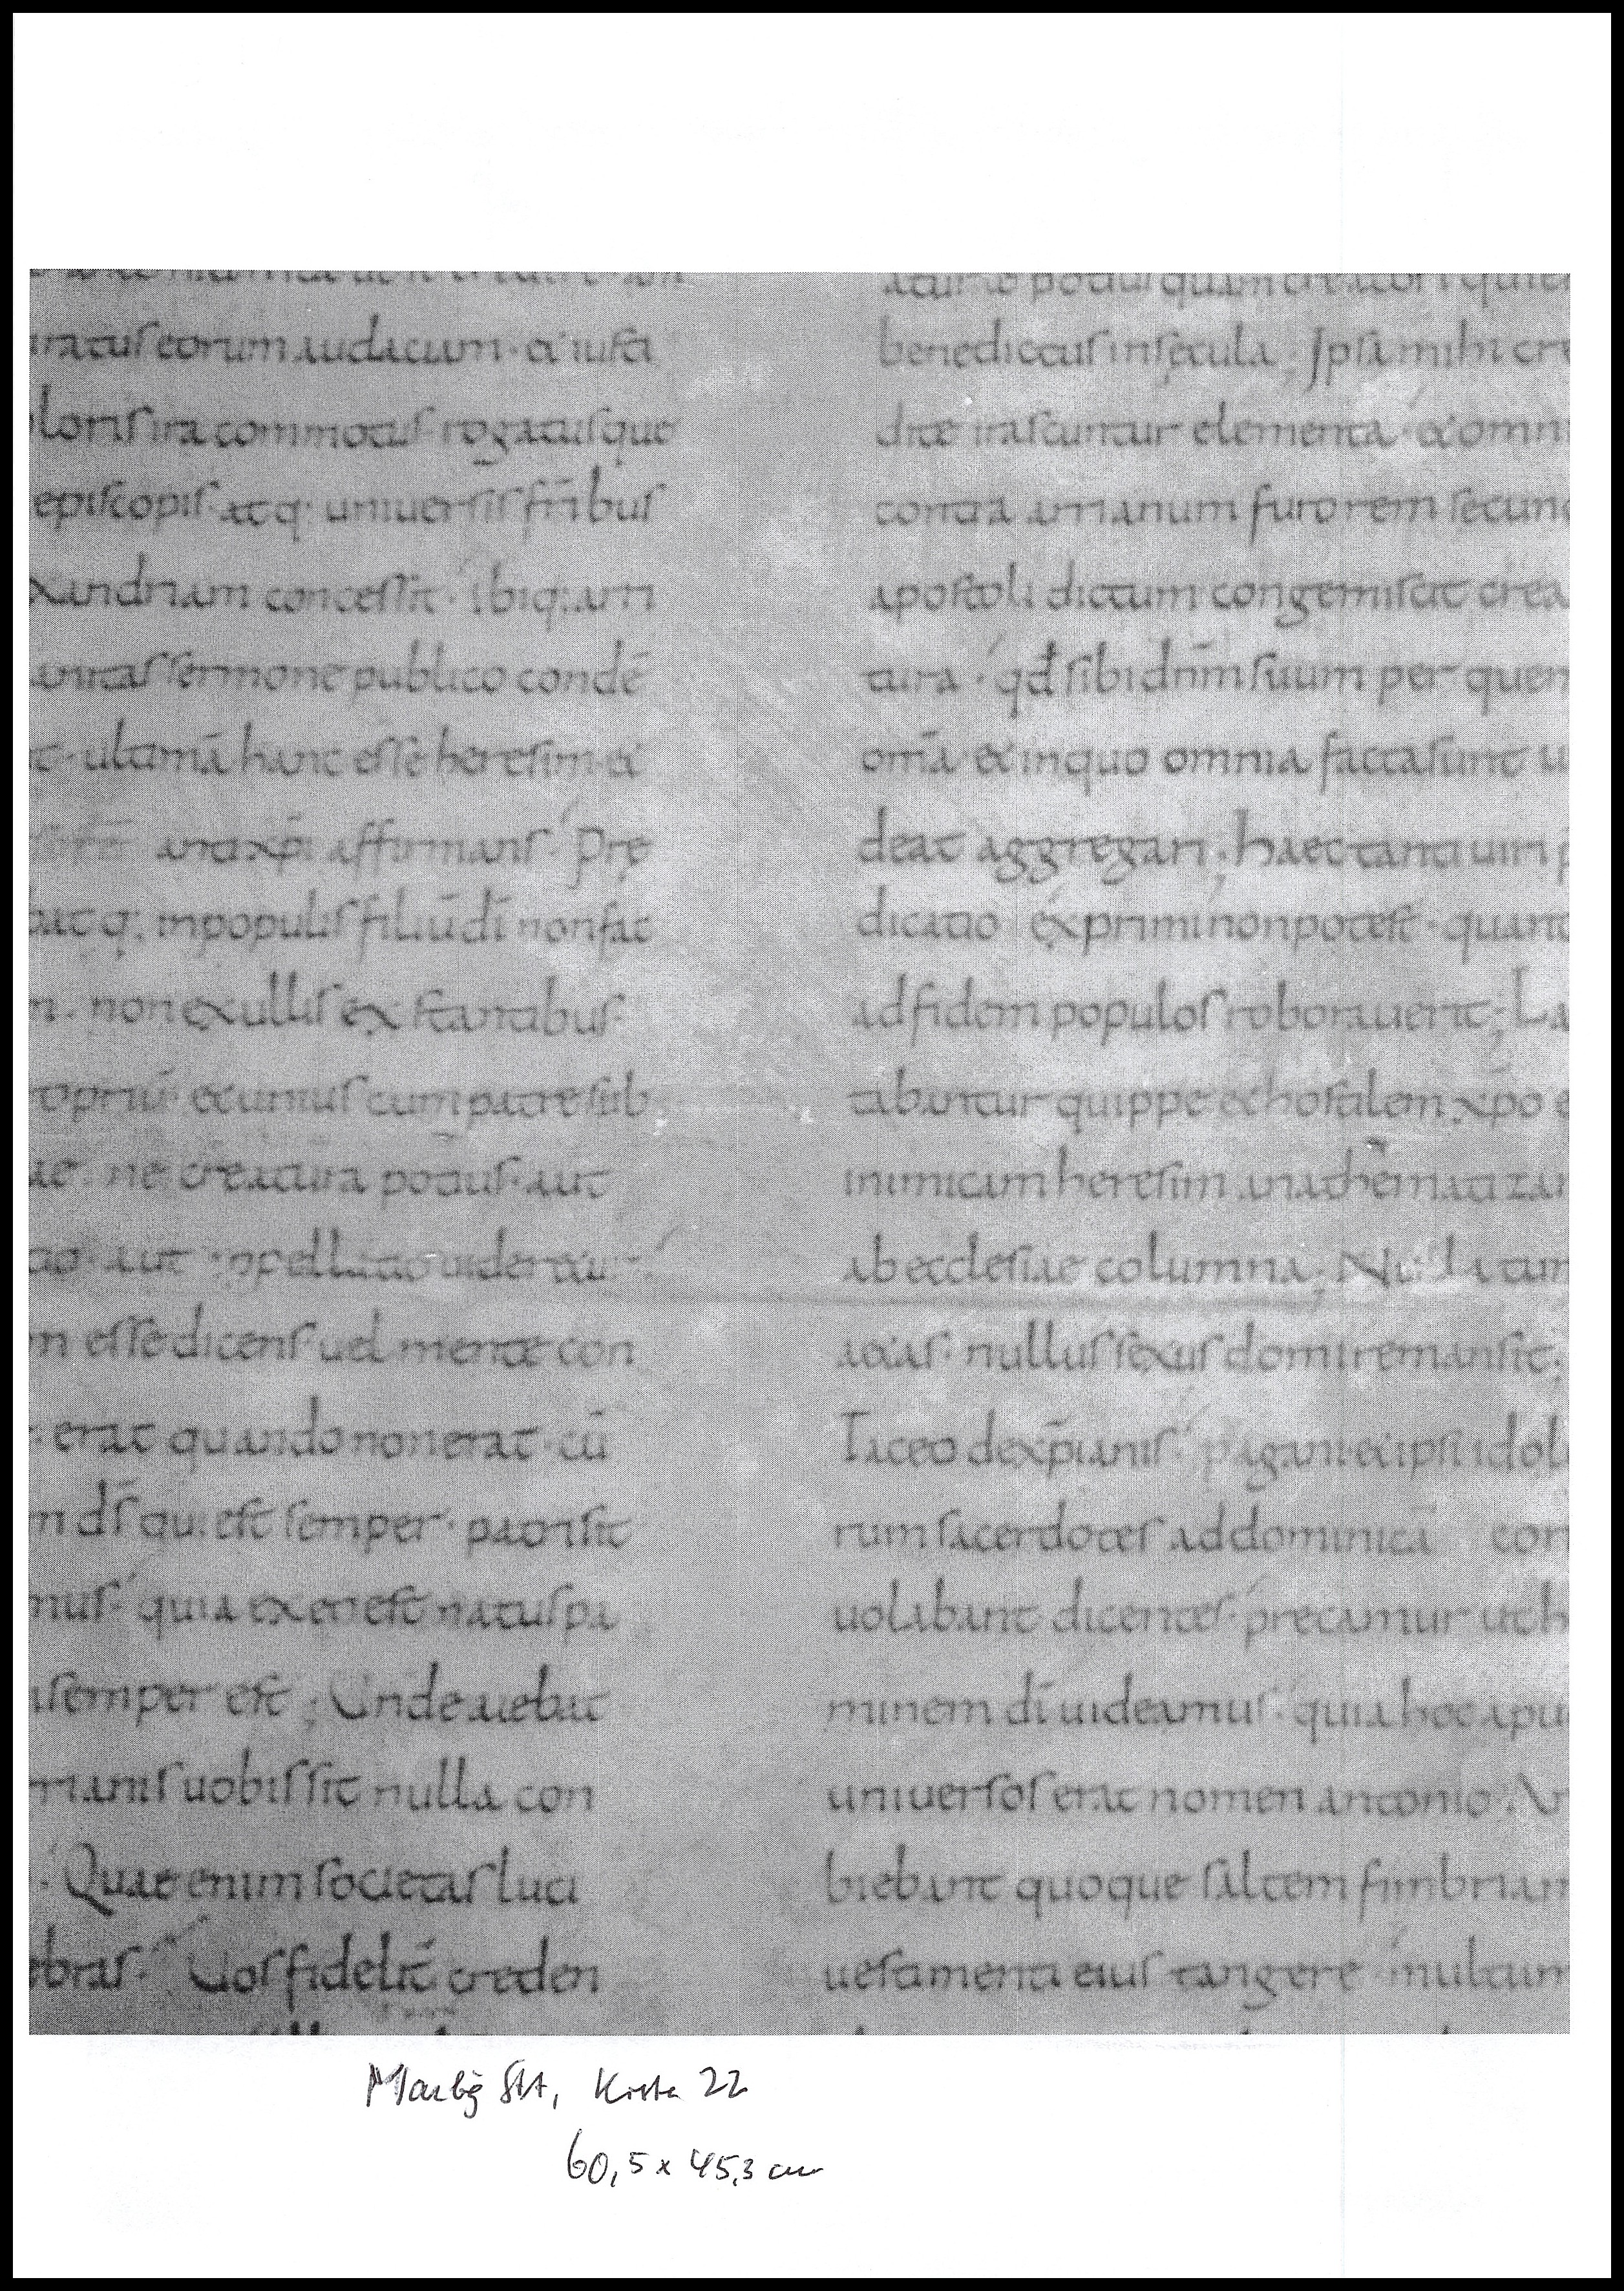 ratus eorum audaciam · & iusti
loris ira commotus · rogatusque
episcopis · atq; uniuersis fr̄ibus
xandriam concessit · Ibiq; arri
anitas sermone publico condē
t · ultimā hanc esse heresim · &
antixp̄i affirmans · Prę
bat q; in populis filiū dī non fac
n · non ex ullis ex stantibus ·
propriū et unius cum patre sub
ae · ne creatura potius · aut
tio · aut · appellatio uideretur ·
m esse dicens uel mente con
· erat quando non erat · cū
m dś qui est semper · patri sit
nus · quia ex eo est natus pa
semper est ; Unde aiebat
rianis uobis sit nulla con
· Quae enim societas luci
ebras · Uos fidelit̄ creden
aturae potius quam creatori qui e
benedictus in sęcula ; Ipsa mihi cre
dite irascuntur elementa · & omni
contra arrianum furorem secund
apostoli dictum congemiscit crea
tura · qđ sibi dnm̄ suum per quem
om̄a & in quo omnia facta sunt ui
deat aggregari ; haec tanti uiri p
dicatio exprimi non potest · quant
ad fidem populos roborauerit ; La
tabantur quippe & hostilem xp̄o e
inimicam heresim anathematizar
ab ecclesiae columna ; Nulla tum
aetas · nullus sexus domi remansit ;
Taceo de xp̄ianis · pagani & ipsi idolo
rum sacerdotes ad dominicā con
uolabant dicentes · precamur ut h
minem dī uideamus · quia hoc apu
uniuersos erat nomen antonio · Am
biebant quoque saltem fimbriam
uestimenti eius tangere · multum
Marbg StA, Kiste 22
60,5 x 45,3 cm